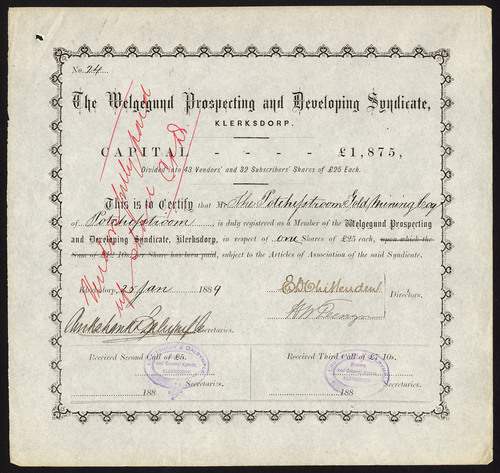 No. 24
The Welgegund Prospecting and Developing Syndicate,
KLERKSDORP.
CAPITAL - - - - £1,875,
Divided into 43 Vendors' and 32 Subscribers' Shares of £25 Each.
This is to Certify that Mr The Potchefstroom Gold Mining Coy
of Potchefstroom is duly registered as a Member of the Welgegund Prospecting
and Developing Syndicate, Klerksdorp, in respect of one Shares of £25 each, upon which the
Sum of 10s. per Share has been paid, subject to the Articles of Association of the said Syndicate.
Klerksdorp, 25 Jan 1889
E D Chittenden
Directors.
Secretaries.
Received Second Call of £5.
Secretaries.
188
Received Third Call of £7 10s.
Secretaries.
188
Vendors fully paid